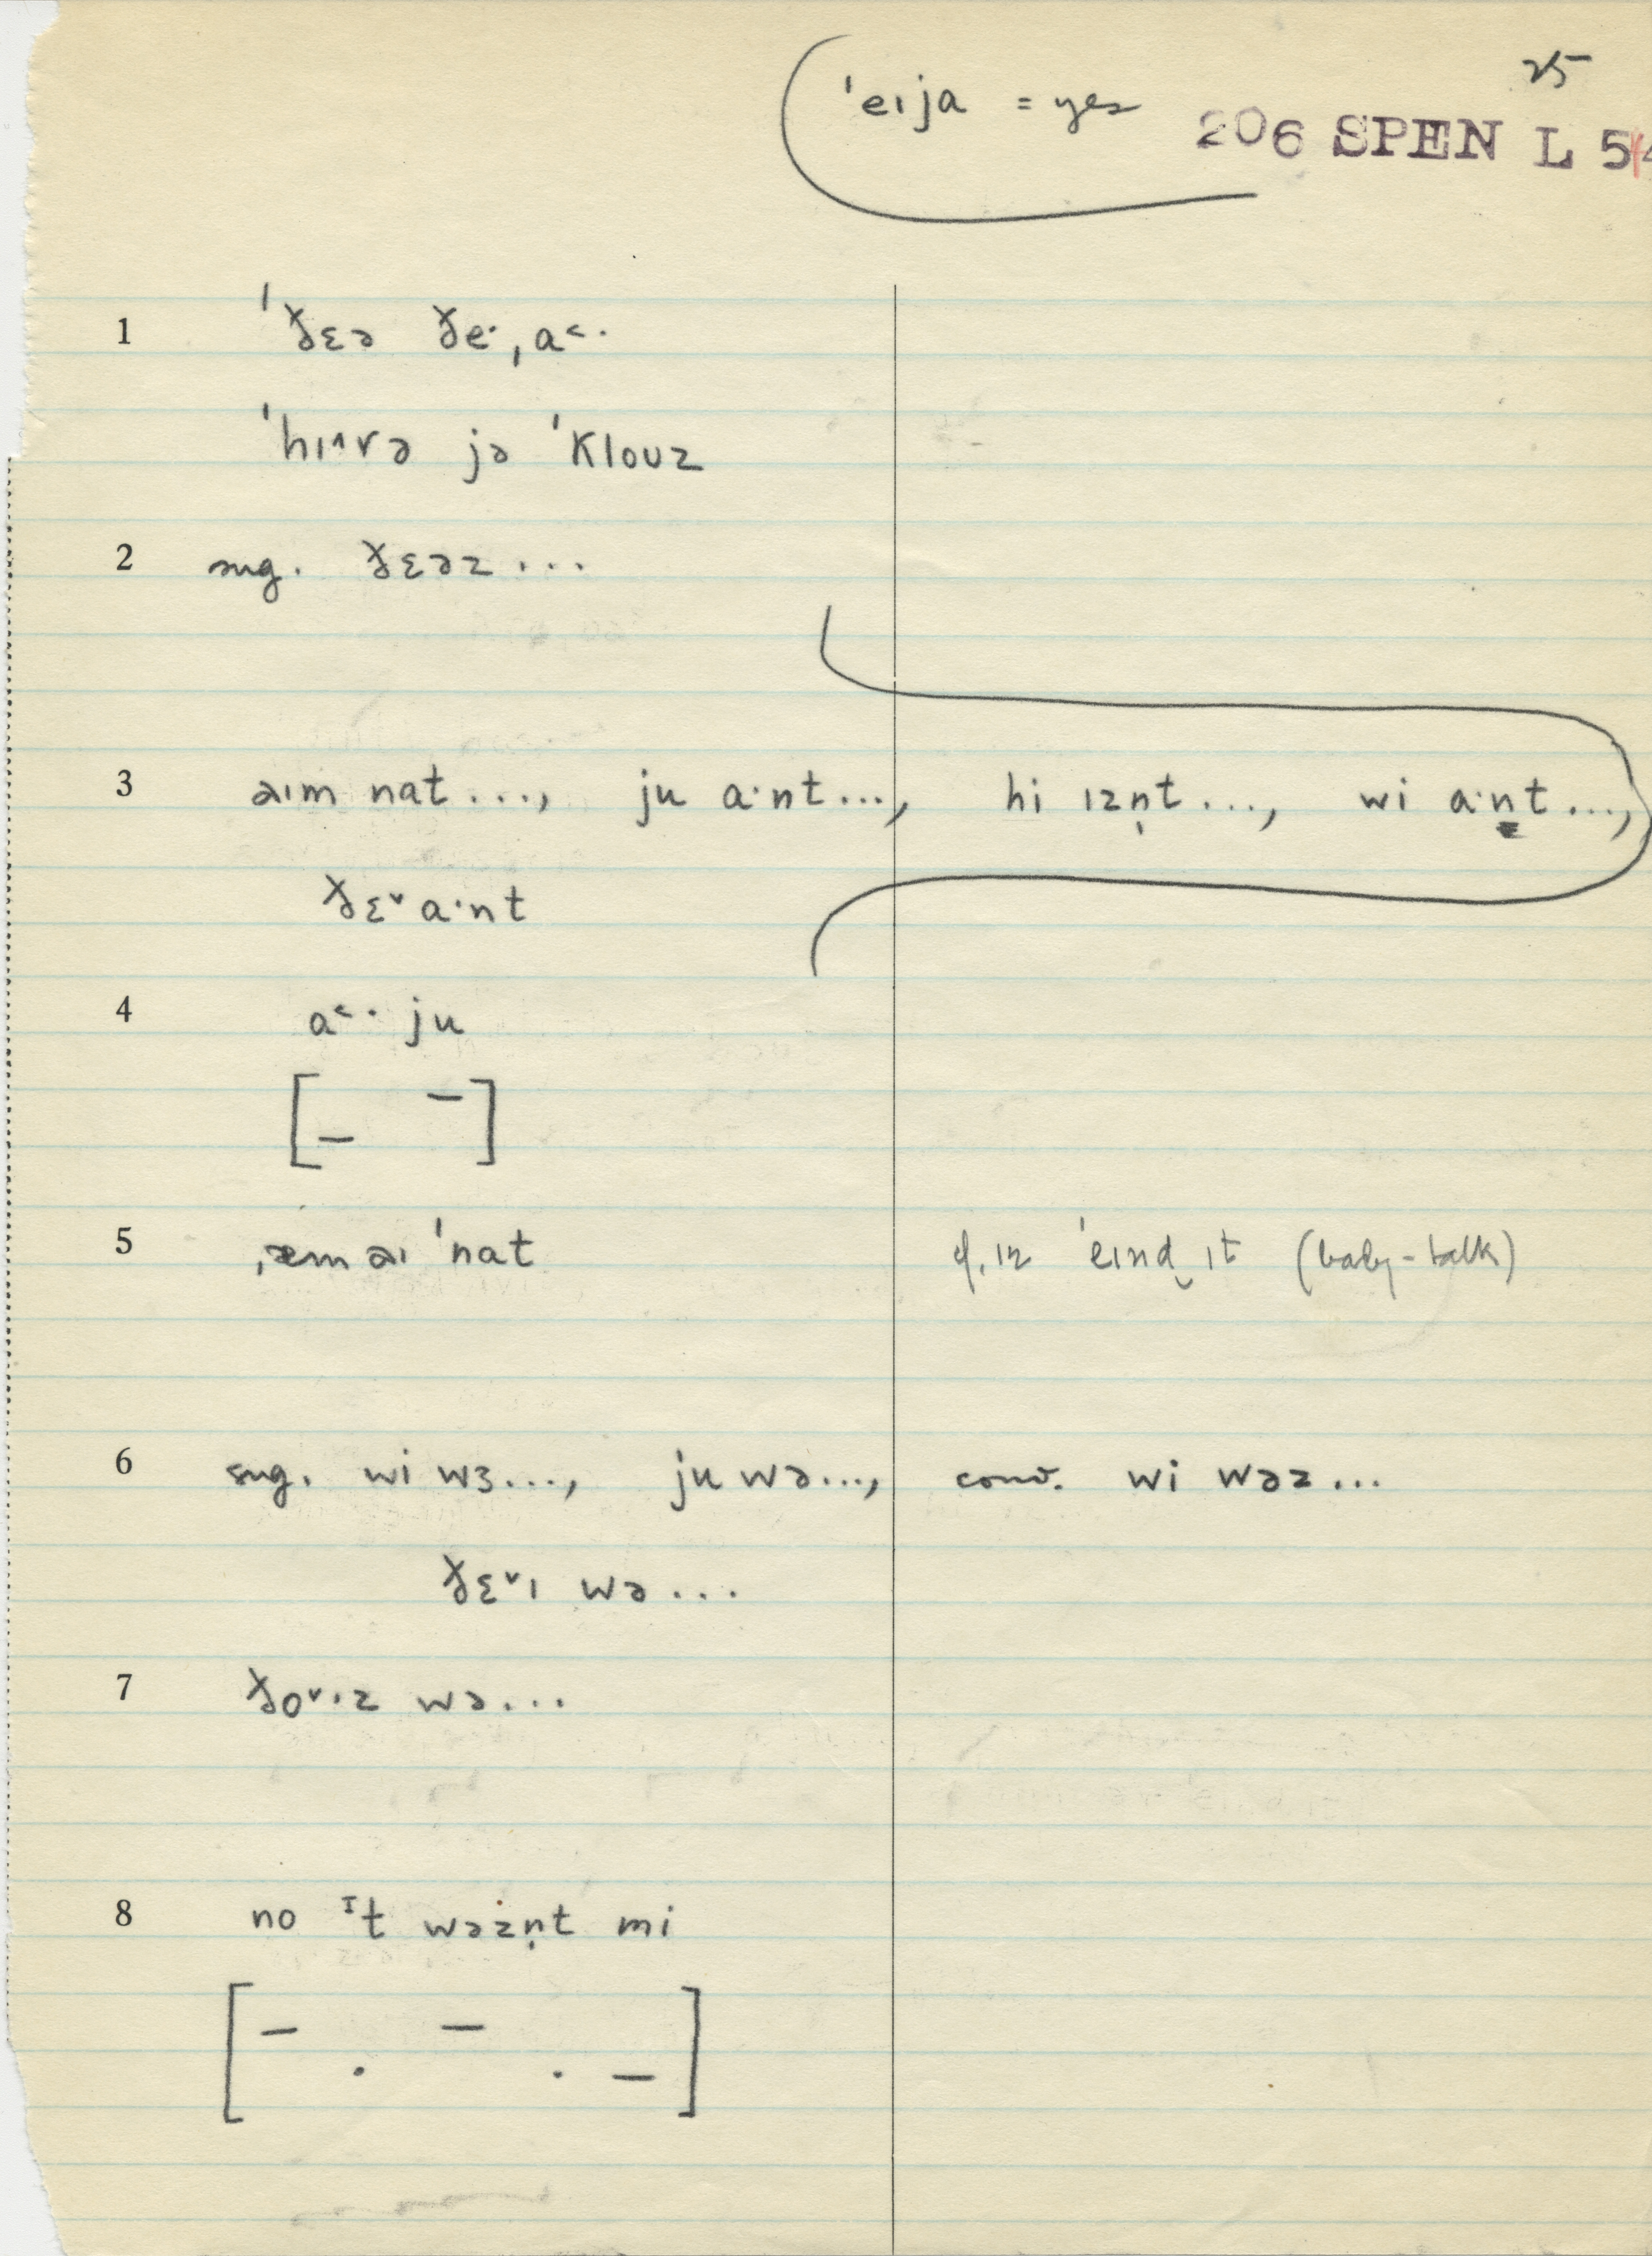 25
ˈeɪja = yes
206 SPEN L 54
1 ˈð̵ɛə ð̵eˑˌa˂ˑ
ˈhɪ˄və jə ˈklouz
2 sug. ð̵ɛəz ...
3 aɪm nat..., ju aˑnt..., hi ɪzn̩t..., wi aˑnt...,
ð̵ɛ˅aˑnt
4 a˂ˑ ju
[– –]
5 ˌæm aɪ ˈnat cf. ɪz ˈeɪnd̯ ɪt (baby-talk)
6 sug. wi wɜ..., ju wə..., conv. wi wəz...
ð̵ɛ˅ɪ wə...
7 ð̵o˅ˑz wə...
8 no ɪt wəzn̩t mi
[– . – . –]